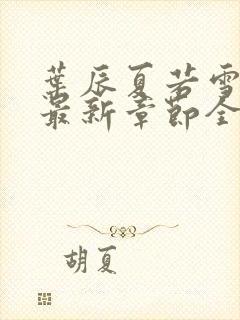 葉辰夏若雪
最新章節全
胡夏